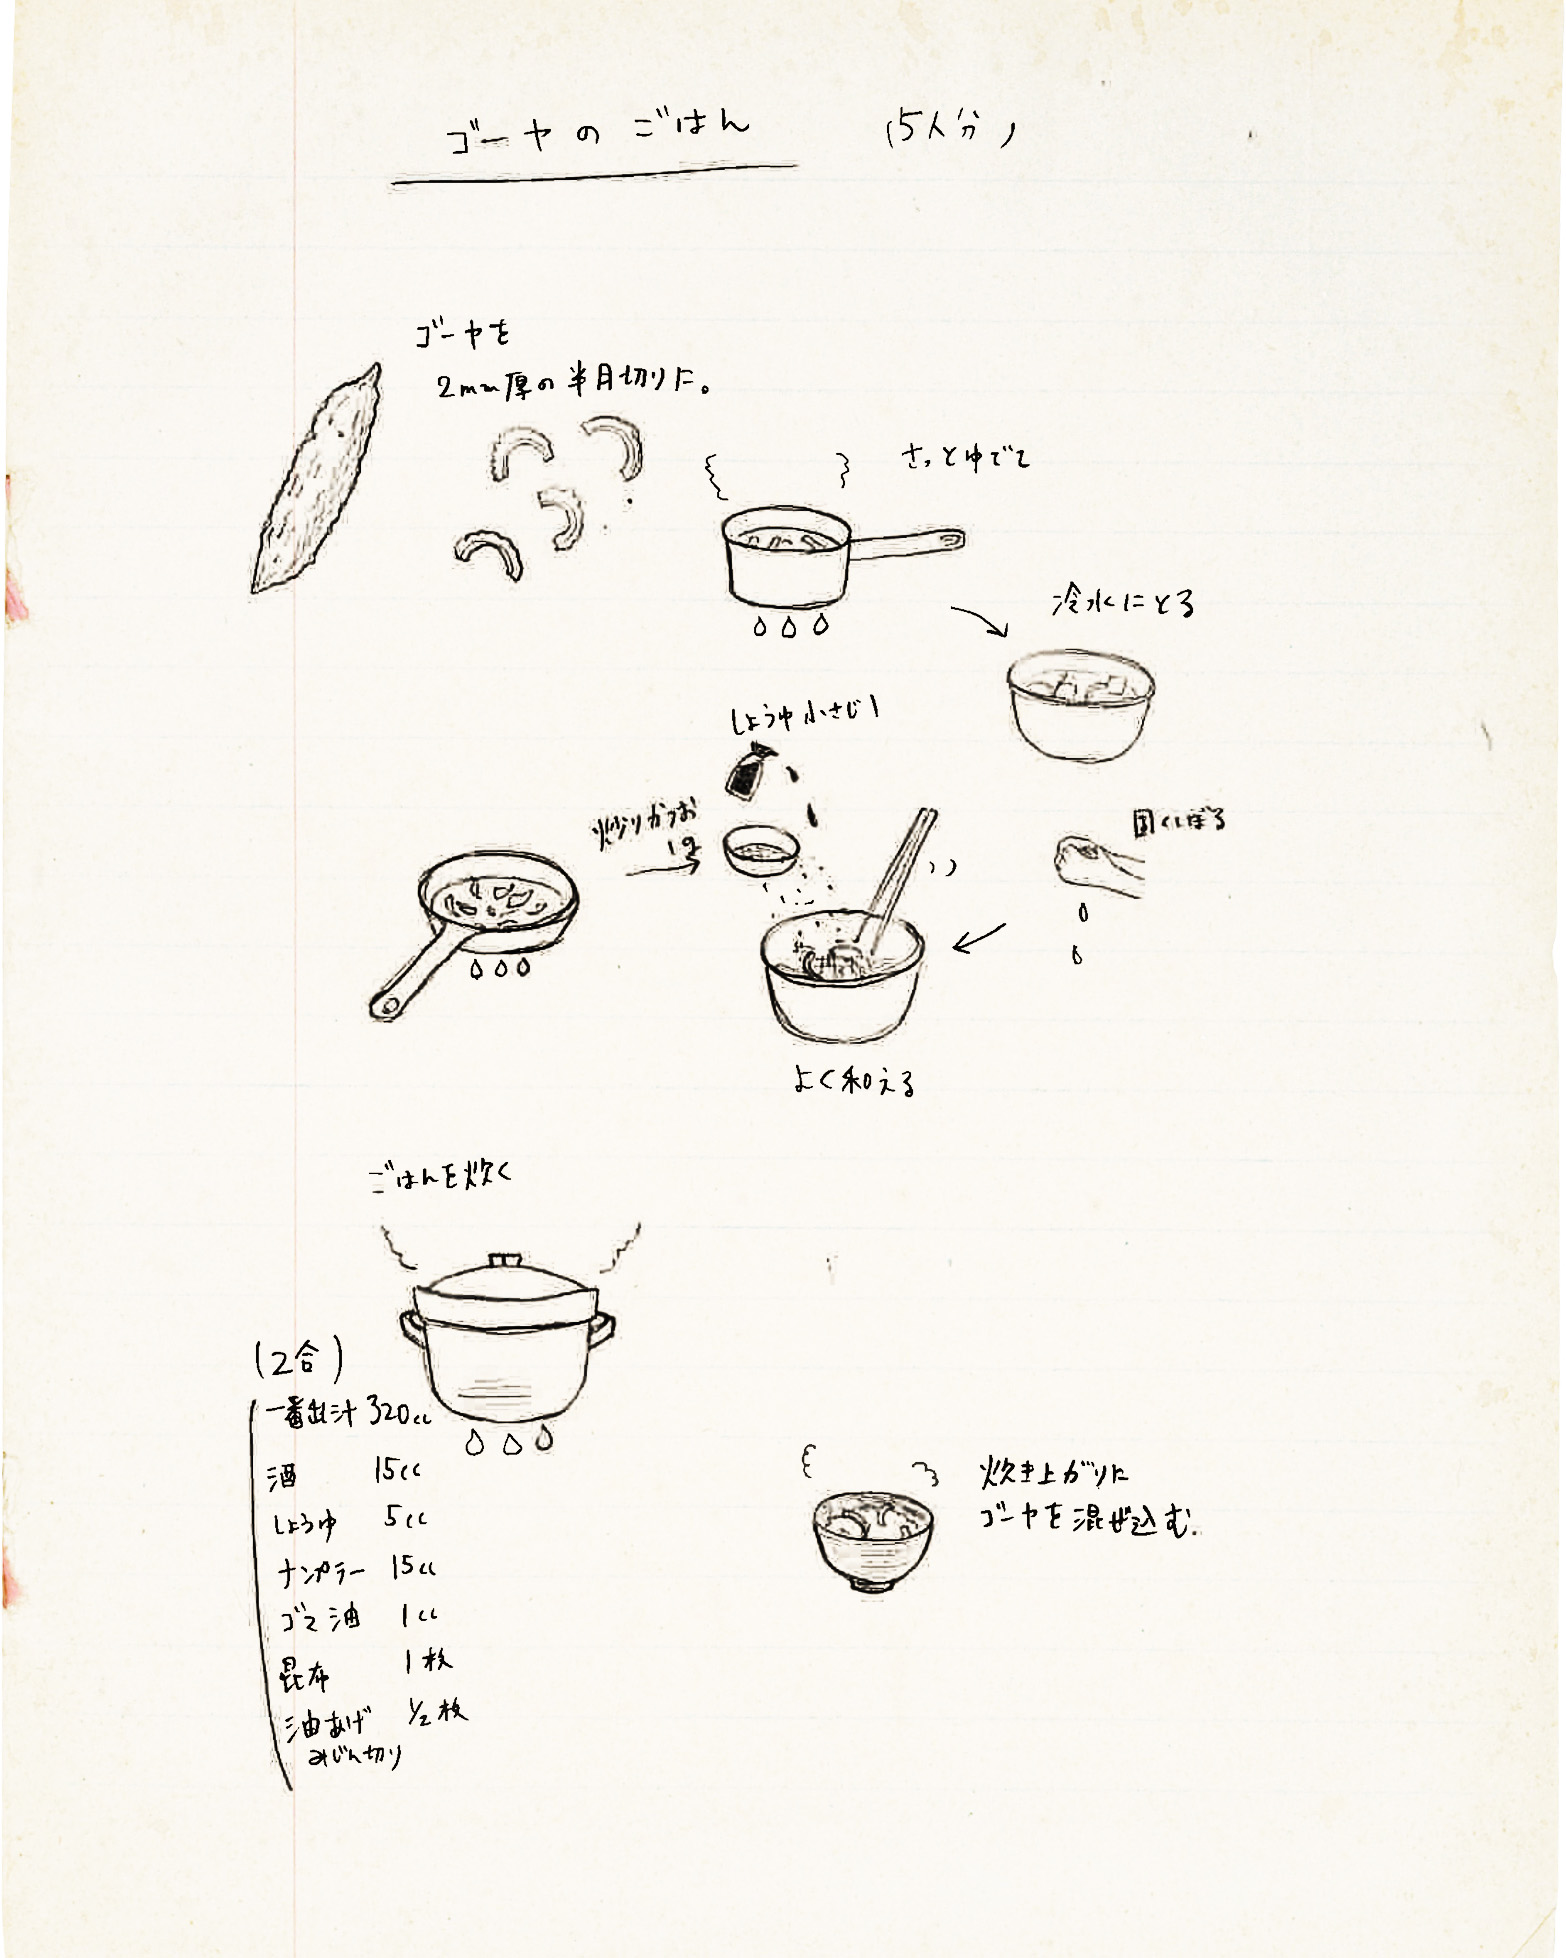 ゴーヤのごはん (5人分)
ゴーヤを
2mm厚の半月切りに。
さっとゆでて
冷水にとる
しょうゆ小さじ1
炒りかつお
1g
固くしぼる
よく和える
ごはんを炊く
(2合)
一番出汁 320cc
酒 15cc
しょうゆ 5cc
ナンプラー 15cc
ゴマ油 1cc
昆布 1枚
油あげ 1/2枚
みじん切り
炊き上がりに
ゴーヤを混ぜ込む.